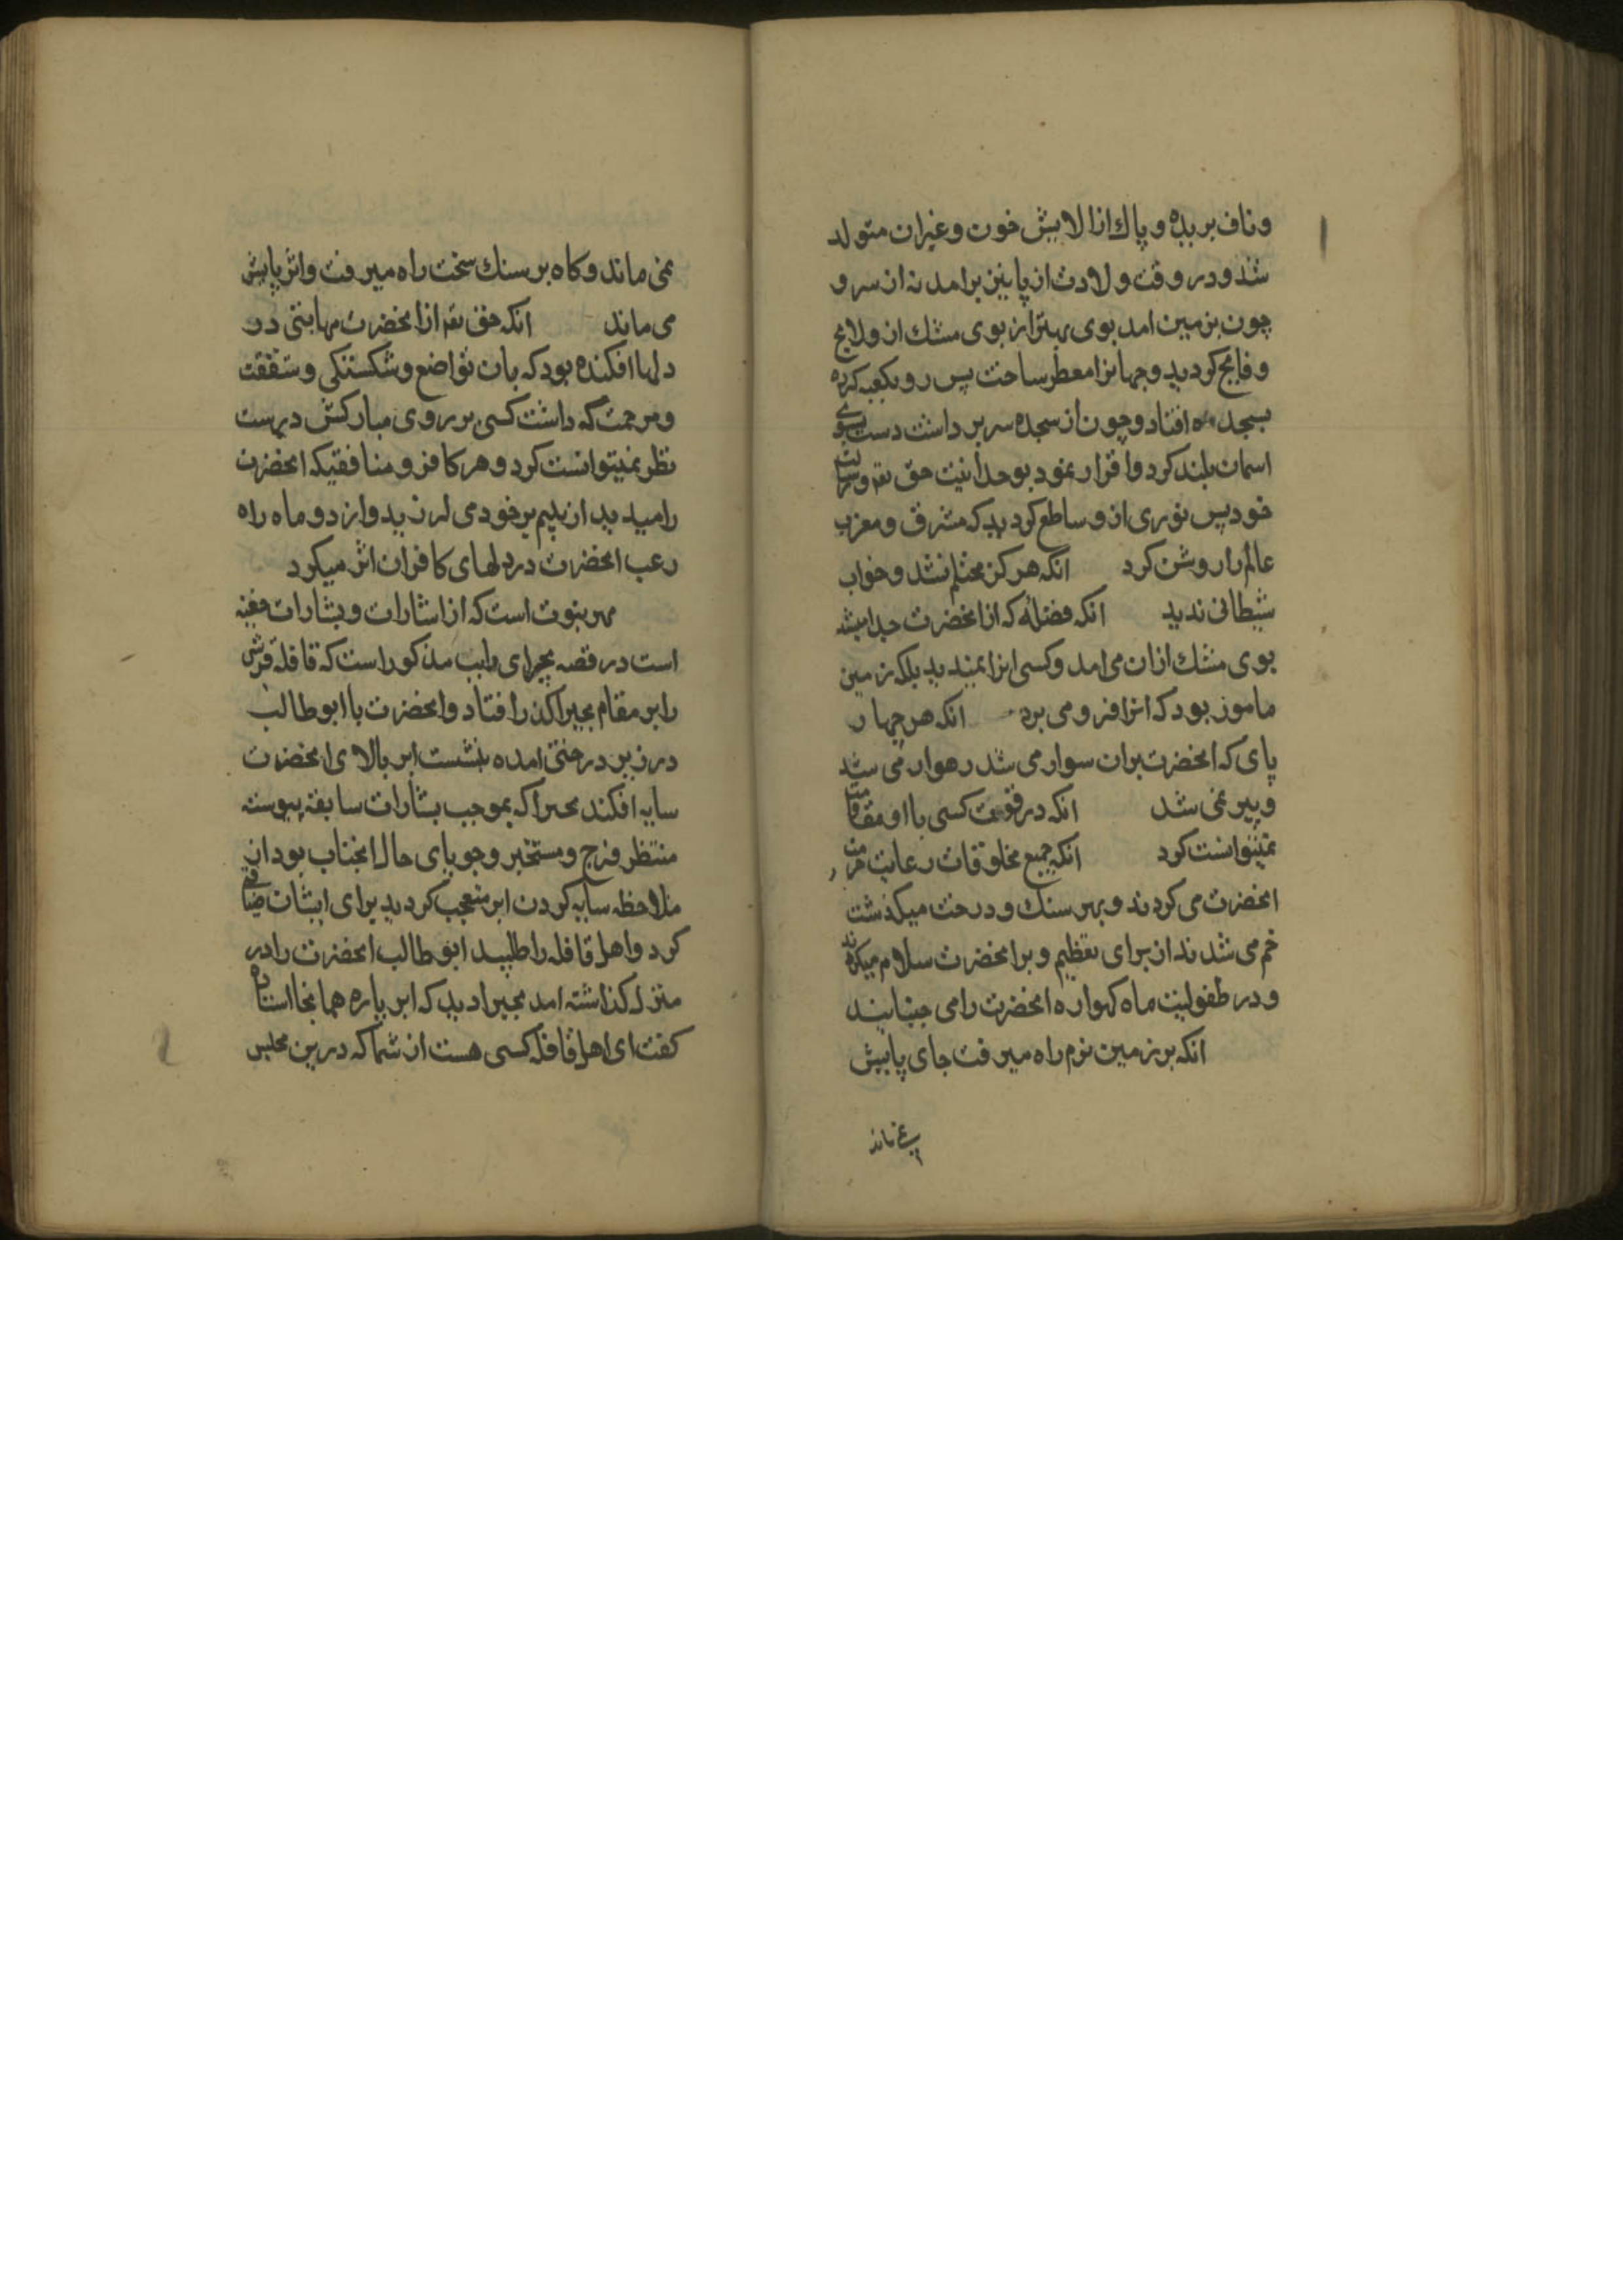 وناف بریده و پاك از الایش خون و غیر ان متولد
شد و در وقت ولادت از پایین برامد نه از سر و
چون بزمین امد بوی بهتر از بوی مشك از و لایح
و فایح کردید و جهانرا معطر ساخت پس رو بکعبه کرده
بسجده افتاد و چون از سجده سر برداشت دست بسوی
اسمان بلند کرد و اقرار نمود بوحدانیت حق تعه و رسالت
خود پس نوری از و ساطع کردید که مشرق و مغرب
عالم را روشن کرد انکه هرکز محتلم نشد و خواب
شیطانی ندید انکه فضلهٔ که از انحضرت جدا میشد
بوی مشك ازان می امد و کسی انرا نمیدید بلکه زمین
مامور بود که انرا فرو می برد انکه هر چهار
پای که انحضرت بران سوار می شد رهوار می شد
و پیر نمی شد انکه در قوت کسی با او مقاومت
نمیتوانست کرد انکه جمیع مخلوقات رعایت حرمت
انحضرت می کردند و بهر سنك و درخت میکذشت
خم می شدند از برای تعظیم و بر انحضرت سلام میکردند
و در طفولیت ماه کهواره انحضرت را می جنبانید
انکه بر زمین نرم راه میرفت جای پایش
نمی ماند
نمی ماند و کاه بر سنك سخت راه میرفت و اثر پایش
می ماند انکه حق تعه از انحضرت مهابتی در
دلها افکنده بود که بان تواضع و شکستکی و شفقت
و مرحمت که داشت کسی بر روی مبارکش درست
نظر نمیتوانست کرد و هر کافر و منافقیکه انحضرت
را میدید از بیم بر خود می لرزید و از دو ماه راه
رعب انحضرت در دلهای کافران اثر میکرد
مهر نبوت است که از اشارات و بشارات
است در قصه بحیرای راهب مذکور است که قافله قرشی
را بر مقام بحیرا کذر افتاد و انحضرت با ابوطالب
در زیر درختی امده بنشست ابر بالای انحضرت
سایه افکند بحیرا که بموجب بشارات سابقه پیوسته
منتظر فرج و مستخبر و جویای حال انجناب بود از
ملاحظه سایه کردن ابر متعجب کردید برای ایشان ضیافت
کرد و اهل قافله را طلبید ابوطالب انحضرت را در
منزل کذاشته امد بحیرا دید که ابر پاره همانجا استاده
کفت ای اهل قافله کسی هست از شما که درین مجلس